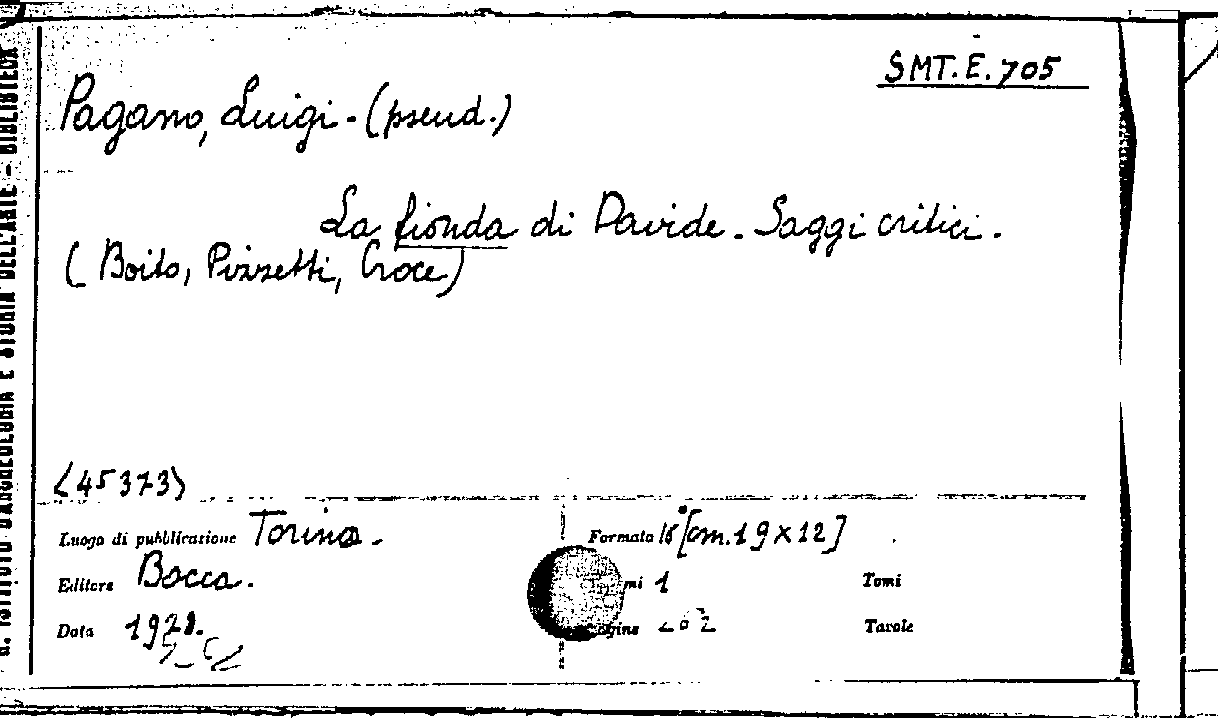 SMT. E. 705
Pagano, Luigi - (pseud.)
La fionda di Davide. Saggi critici.
(Boito, Pizzetti, Croce)
<45373>
Luogo di pubblicazione Torino.
Formato 16° [cm. 19 x 12]
Editore Bocca.
mi 1
Tomi
Data
gine 202
Tavole
R. ISTITUTO D'ARCHEOLOGIA E STORIA DELL'ARTE - BIBLIOTECA